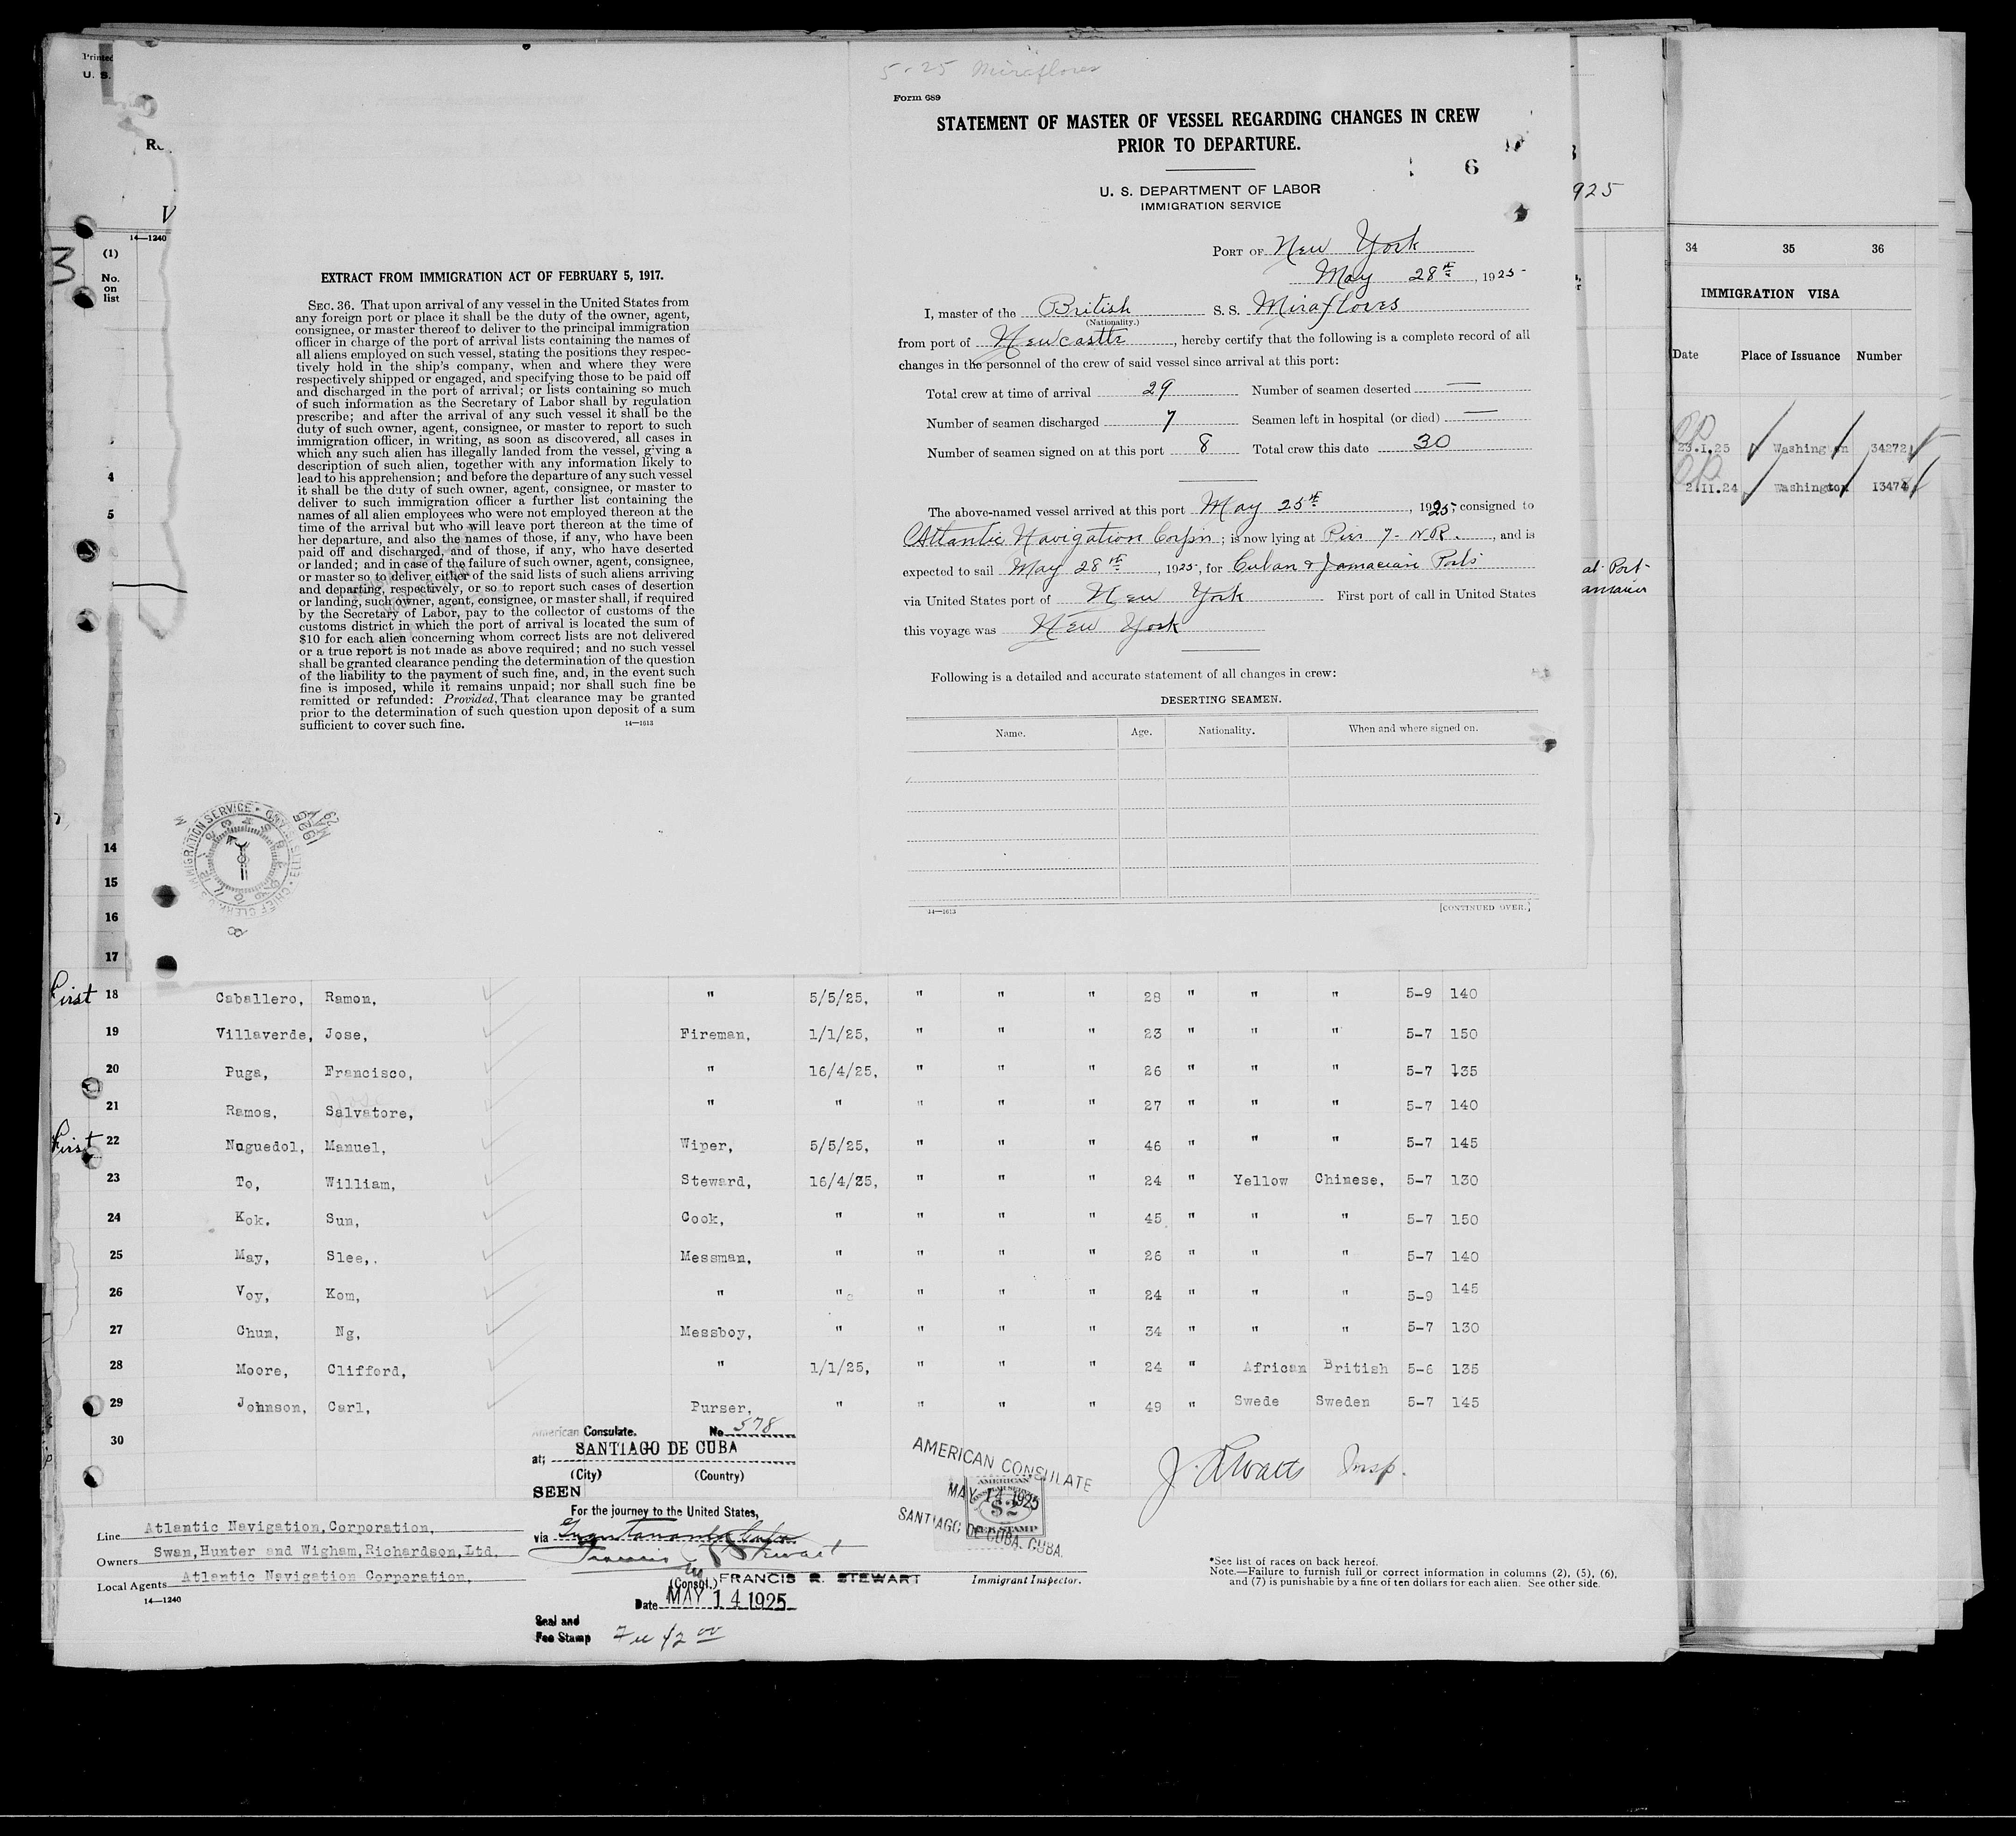 Printed
U. S.
14—1240
(1)
No.
on
list
3
4
5
14
15
16
17
EXTRACT FROM IMMIGRATION ACT OF FEBRUARY 5, 1917.
SEC. 36. That upon arrival of any vessel in the United States from
any foreign port or place it shall be the duty of the owner, agent,
consignee, or master thereof to deliver to the principal immigration
officer in charge of the port of arrival lists containing the names of
all aliens employed on such vessel, stating the positions they respec-
tively hold in the ship's company, when and where they were
respectively shipped or engaged, and specifying those to be paid off
and discharged in the port of arrival; or lists containing so much
of such information as the Secretary of Labor shall by regulation
prescribe; and after the arrival of any such vessel it shall be the
duty of such owner, agent, consignee, or master to report to such
immigration officer, in writing, as soon as discovered, all cases in
which any such alien has illegally landed from the vessel, giving a
description of such alien, together with any information likely to
lead to his apprehension; and before the departure of any such vessel
it shall be the duty of such owner, agent, consignee, or master to
deliver to such immigration officer a further list containing the
names of all alien employees who were not employed thereon at the
time of the arrival but who will leave port thereon at the time of
her departure, and also the names of those, if any, who have been
paid off and discharged, and of those, if any, who have deserted
or landed; and in case of the failure of such owner, agent, consignee,
or master so to deliver either of the said lists of such aliens arriving
and departing, respectively, or so to report such cases of desertion
or landing, such owner, agent, consignee, or master shall, if required
by the Secretary of Labor, pay to the collector of customs of the
customs district in which the port of arrival is located the sum of
$10 for each alien concerning whom correct lists are not delivered
or a true report is not made as above required; and no such vessel
shall be granted clearance pending the determination of the question
of the liability to the payment of such fine, and, in the event such
fine is imposed, while it remains unpaid; nor shall such fine be
remitted or refunded: Provided, That clearance may be granted
prior to the determination of such question upon deposit of a sum
sufficient to cover such fine.
14—1613
MAY 29 1925
5-25 Miraflores
Form 689
STATEMENT OF MASTER OF VESSEL REGARDING CHANGES IN CREW
PRIOR TO DEPARTURE.
6
U. S. DEPARTMENT OF LABOR
IMMIGRATION SERVICE
PORT OF New York
May 28th, 1925-
I, master of the British S. S. Miraflores
(Nationality.)
from port of Newcastle, hereby certify that the following is a complete record of all
changes in the personnel of the crew of said vessel since arrival at this port:
Total crew at time of arrival 29 Number of seamen deserted —
Number of seamen discharged 7 Seamen left in hospital (or died) —
Number of seamen signed on at this port 8 Total crew this date 30
The above-named vessel arrived at this port May 25th, 1925, consigned to
Atlantic Navigation Corp'n; is now lying at Pier 7- N.R., and is
expected to sail May 28th, 1925, for Cuban & Jamacian Ports
via United States port of New York First port of call in United States
this voyage was New York
Following is a detailed and accurate statement of all changes in crew:
DESERTING SEAMEN.
Name. Age. Nationality. When and where signed on.
14—1613 [CONTINUED OVER.]
925
34 35 36
IMMIGRATION VISA
Date Place of Issuance Number
23.I.25 Washington 34272
2.II.24 Washington 13474
First 18 Caballero, Ramon, " 5/5/25, " " " 28 " " " 5-9 140
19 Villaverde, Jose, Fireman, 1/1/25, " " " 23 " " " 5-7 150
20 Puga, Francisco, " 16/4/25, " " " 26 " " " 5-7 135
21 Ramos, Salvatore, " " " " " 27 " " " 5-7 140
First 22 Noguedol, Manuel, Wiper, 5/5/25, " " " 46 " " " 5-7 145
23 To, William, Steward, 16/4/25, " " " 24 " Yellow Chinese, 5-7 130
24 Kok, Sun, Cook, " " " " 45 " " " 5-7 150
25 May, Slee, Messman, " " " " 26 " " " 5-7 140
26 Voy, Kom, " " " " " 24 " " " 5-9 145
27 Chun, Ng, Messboy, " " " " 34 " " " 5-7 130
28 Moore, Clifford, " 1/1/25, " " " 24 " African British 5-6 135
29 Johnson, Carl, Purser, " " " " 49 " Swede Sweden 5-7 145
30
American Consulate. No. 578
at; SANTIAGO DE CUBA
(City) (Country)
SEEN
For the journey to the United States,
via Guantanamo Cuba
Francis R Stewart
(Consul.) FRANCIS R. STEWART
Date MAY 14 1925
Seal and
Fee Stamp Fee $2 00
AMERICAN CONSULATE
MAY 14 1925
SANTIAGO DE CUBA, CUBA.
AMERICAN
$2
FEE STAMP
Immigrant Inspector.
Insp.
Line Atlantic Navigation, Corporation,
Owners Swan, Hunter and Wigham, Richardson, Ltd.
Local Agents Atlantic Navigation Corporation,
14—1240
*See list of races on back hereof.
Note.—Failure to furnish full or correct information in columns (2), (5), (6),
and (7) is punishable by a fine of ten dollars for each alien. See other side.